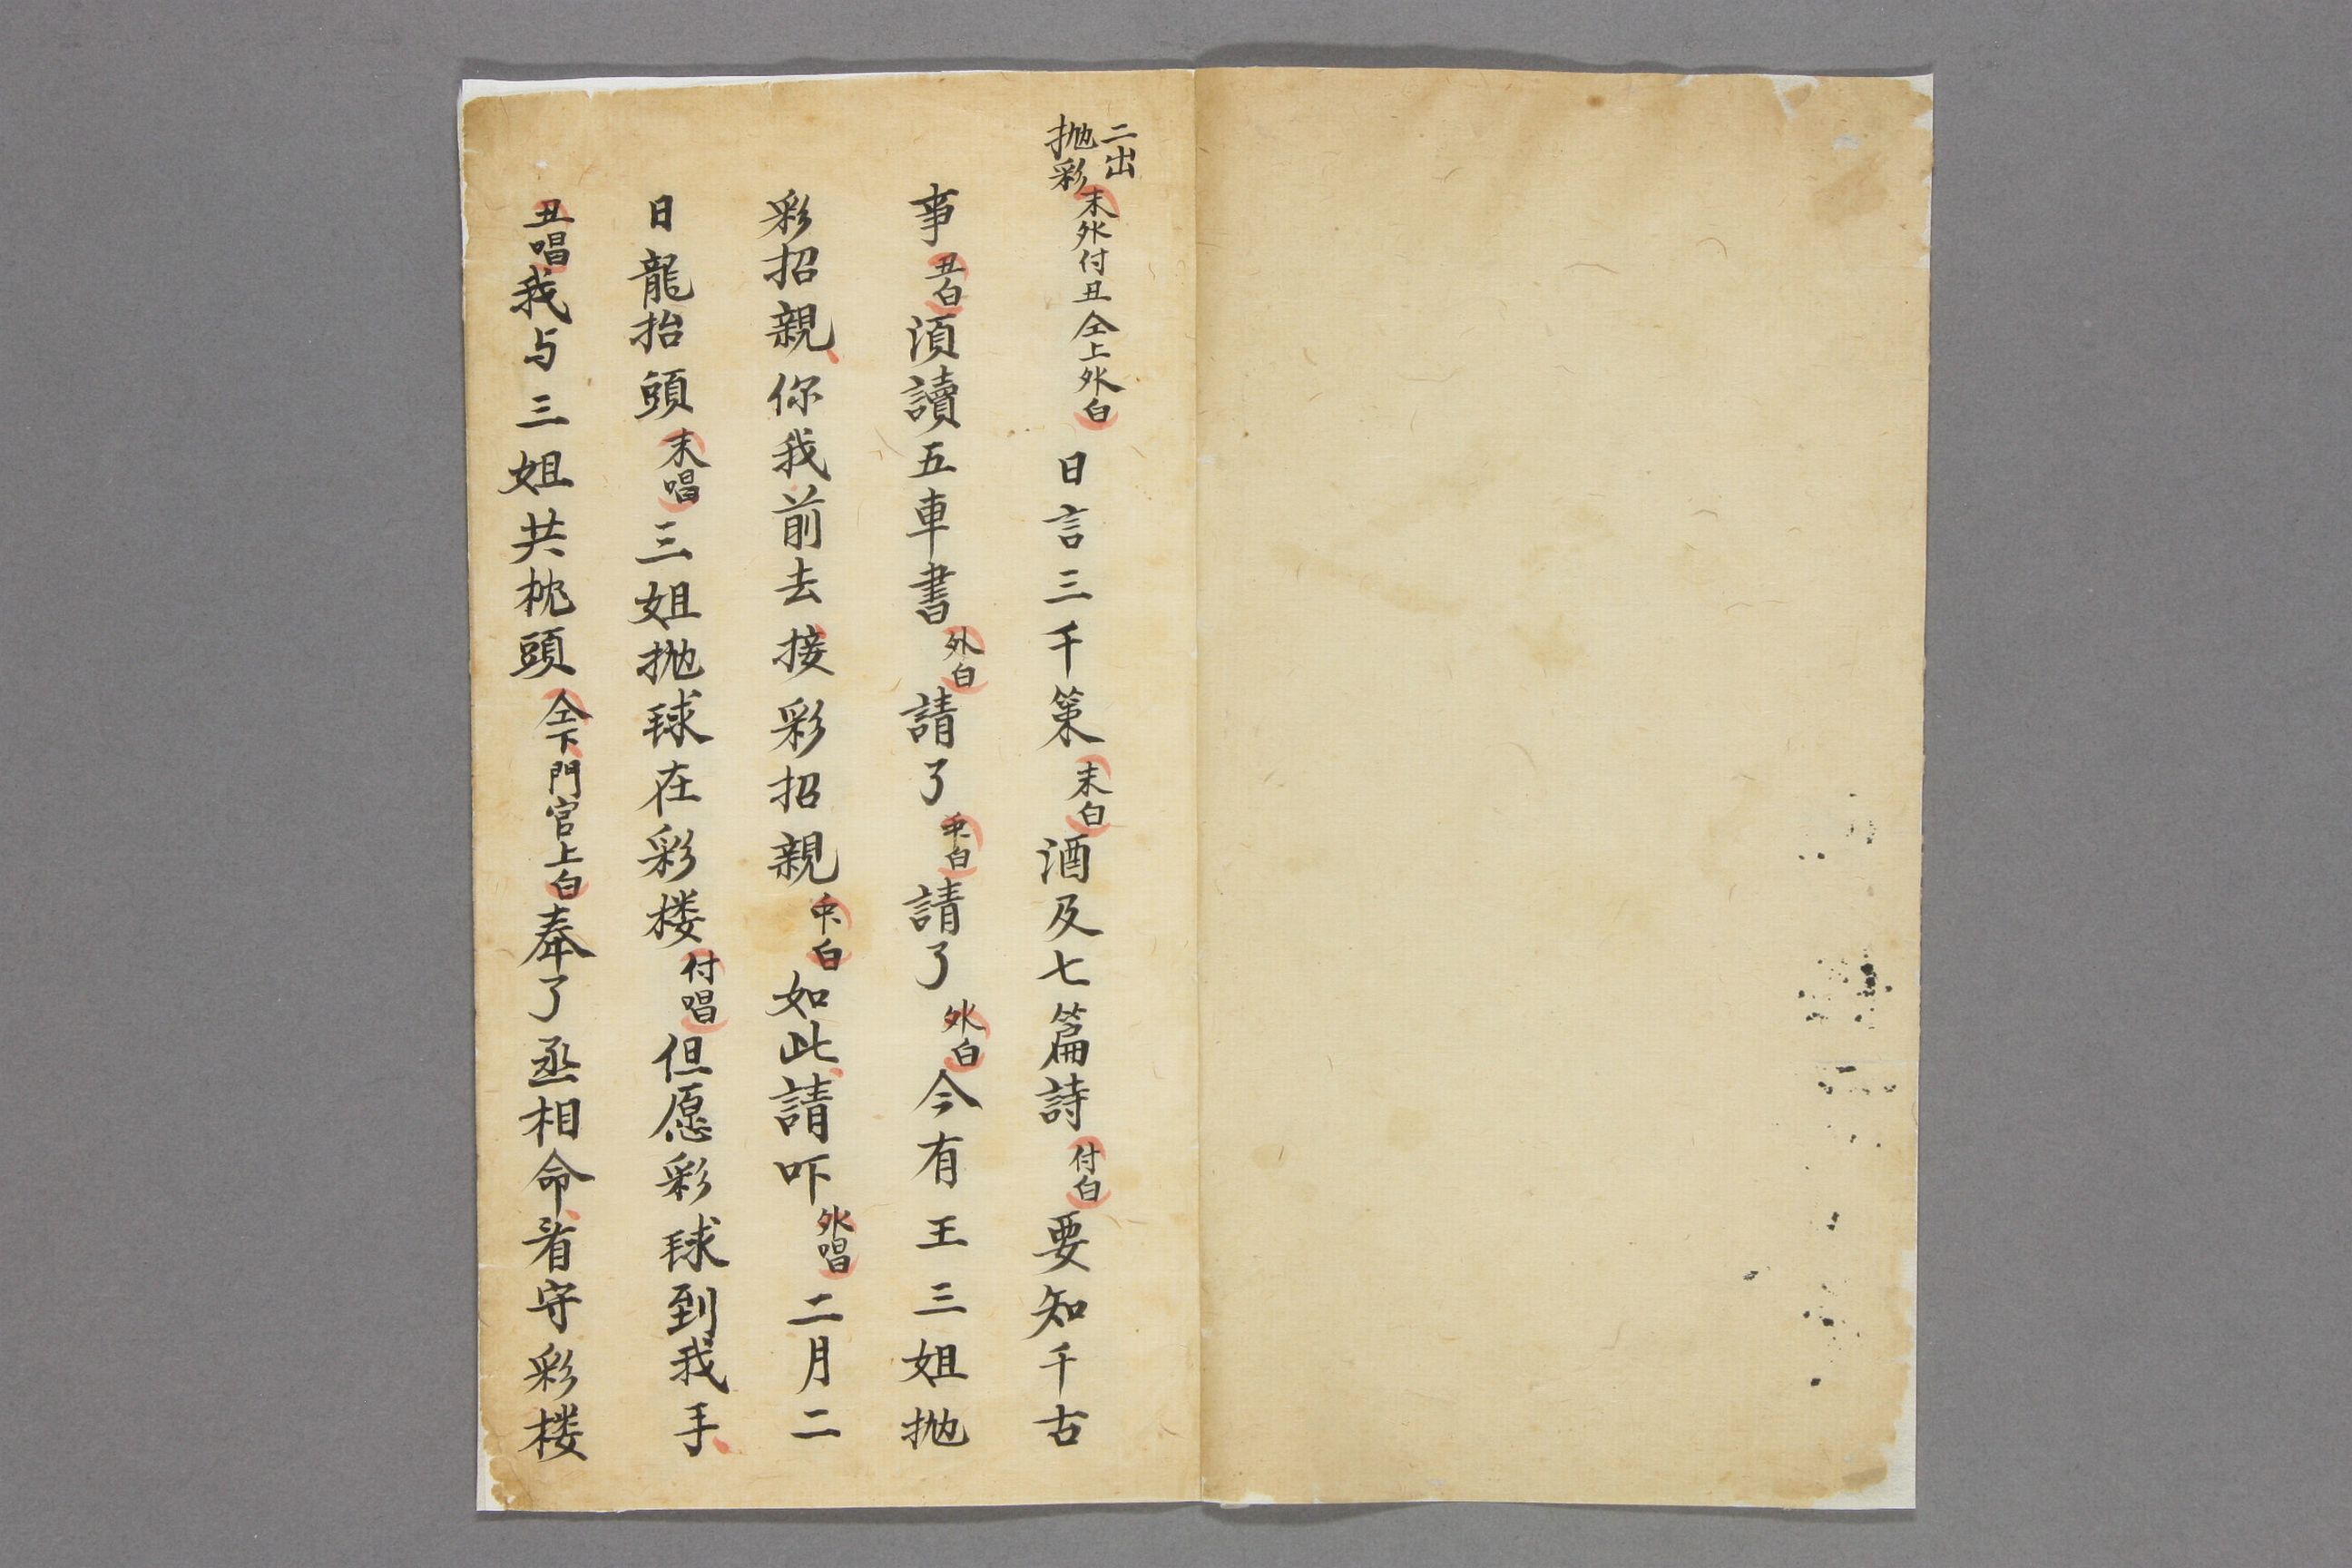 二出
抛彩
末外付丑仝上外白日言三千策末白酒及七篇詩付白要知千古
事丑白湏讀五車書外白請了衆白請了外白今有王三姐抛
彩招親你我前去接彩招親衆白如此請吓外唱二月二
日龍抬頭末唱三姐抛球在彩楼付唱但愿彩球到我手
丑唱我与三姐共枕頭仝下門官上白奉了丞相命看守彩楼